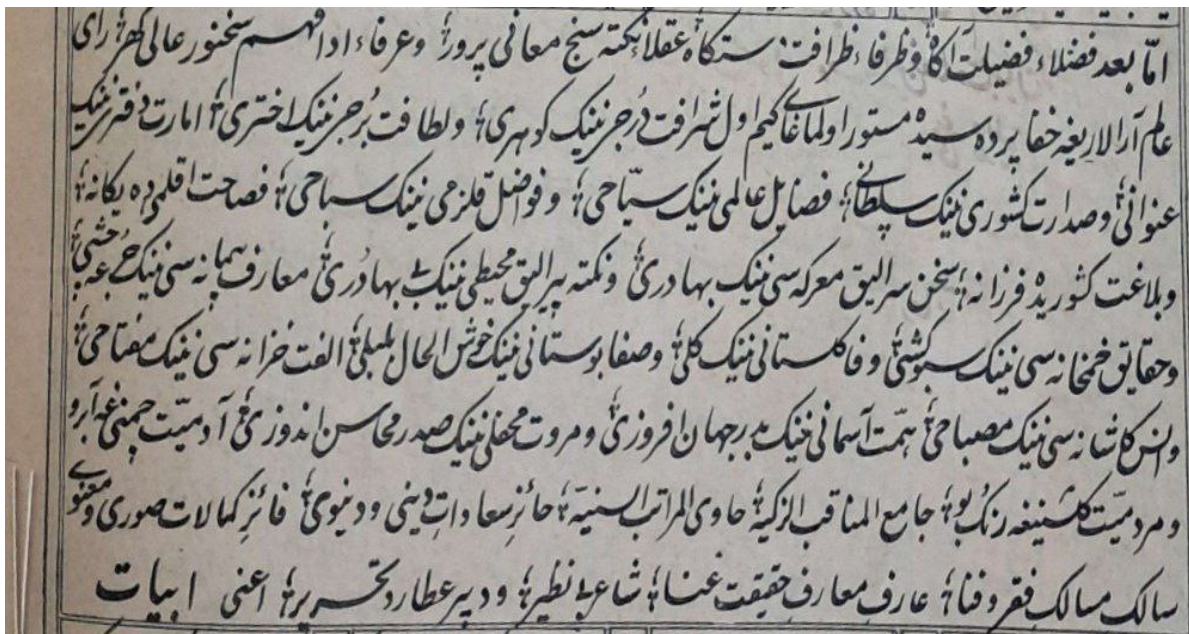 امّا بعد فضلاء فضیلت آکاه و ظرفاء ظرافت دستکاه عقلاء نکته سنج معانی پرور و عرفاء ادا فهم سخنور عالی کهر رای
عالم آرالاریغه خفا پرده سیده مستور اولماغای کیم اول شرافت درجی نینک کوهری و لطافت برجی نینک اختری امارت دفتری نینک
عنوانی و صدارت کشوری نینک سلطانی فضایل عالمی نینک سیّاحی و فواضل قلزمی نینک سباحی فصاحت اقلیمی ده یکانه
و بلاغت کشوریده فرزانه سخن سرالیق معرکه سی نینک بهادری و نکته پیرالیق محیطی نینک بی بها دری معارف پیمانه سی نینک جرعه چشی
و حقایق خمخانه سی نینک سبوکشی وفا کلستانی نینک کلی و صفا بوستانی نینک خوش الحال بلبلی الفت خزانه سی نینک مفتاحی
و انس کاشانه سی نینک مصباحی همّت آسمانی نینک بدر جهان افروزی و مروت محفلی نینک صدر محاسن اندوزی آدمیّت چمنی غه آبرو
و مردمیّت کلشنیغه رنک بو جامع المناقب الزکیه حاوی المراتب السنیّه حائز سعادات دینی و دنیوی فائز کمالات صوری و معنوی
سالک مسالک فقر و فنا عارف معارف حقیقت غنا شاعر بی نظیر و دبیر عطارد تحریر اعنی ابیات